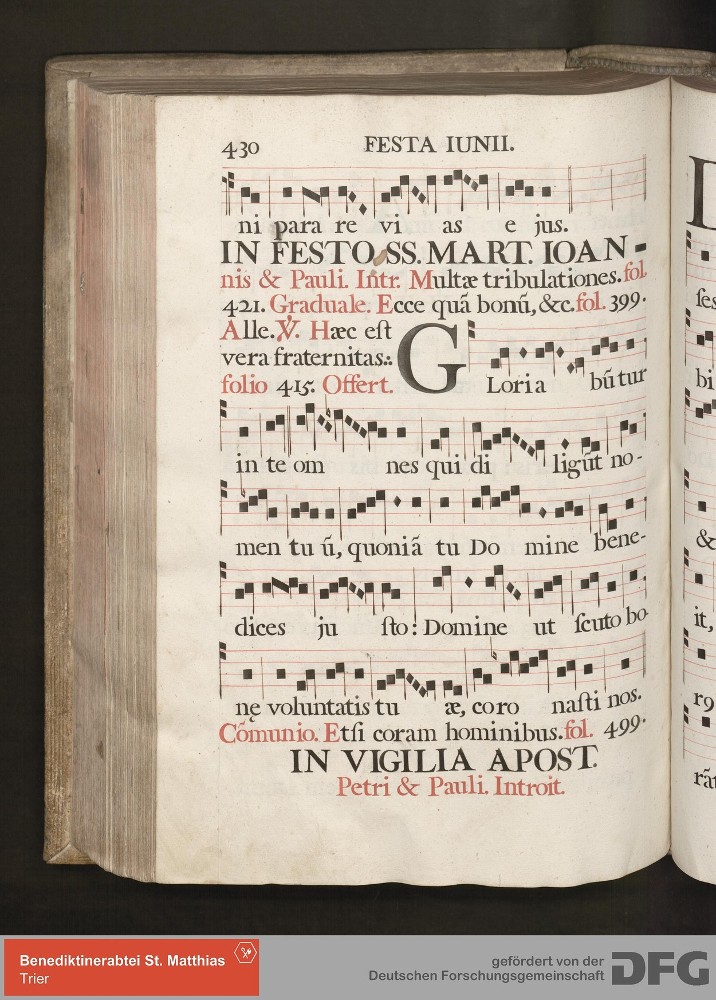 430 FESTA IUNII.
ni para re vi as e jus.
IN FESTO SS. MART. IOAN-
nis & Pauli. Intr. Multæ tribulationes. fol.
421. Graduale. Ecce quã bonũ, &c. fol. 399.
Alle. ℣. Hæc eſt
vera fraternitas.:
folio 415. Offert.
GLoria bũtur
in te om nes qui di ligũt no-
men tu ũ, quoniã tu Do mine bene-
dices ju ſto: Domine ut ſcuto bo-
nę voluntatis tu æ, coro naſti nos.
Cõmunio. Etſi coram hominibus. fol. 499.
IN VIGILIA APOST.
Petri & Pauli. Introit.
ſes
bi
&
it,
r9
rãt
Benediktinerabtei St. Matthias
Trier
gefördert von der
Deutschen Forschungsgemeinschaft
DFG